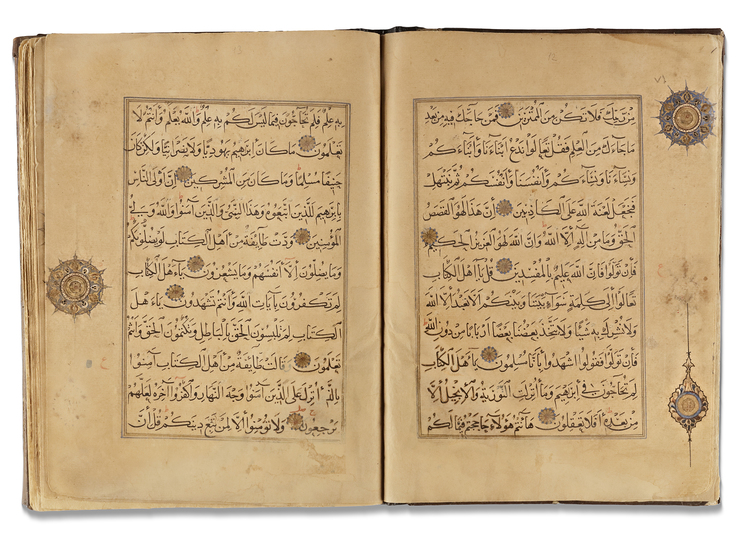 مِنْ رَبِّكَ فَلَا تَكُنْ مِنَ الْمُمْتَرِينَ فَمَنْ حَاجَّكَ فِيهِ مِنْ بَعْدِ
مَا جَاءَكَ مِنَ الْعِلْمِ فَقُلْ تَعَالَوْا نَدْعُ أَبْنَاءَنَا وَأَبْنَاءَكُمْ
وَنِسَاءَنَا وَنِسَاءَكُمْ وَأَنْفُسَنَا وَأَنْفُسَكُمْ ثُمَّ نَبْتَهِلْ
فَنَجْعَلْ لَعْنَةَ اللَّهِ عَلَى الْكَاذِبِينَ إِنَّ هَذَا لَهُوَ الْقَصَصُ
الْحَقُّ وَمَا مِنْ إِلَهٍ إِلَّا اللَّهُ وَإِنَّ اللَّهَ لَهُوَ الْعَزِيزُ الْحَكِيمُ
فَإِنْ تَوَلَّوْا فَإِنَّ اللَّهَ عَلِيمٌ بِالْمُفْسِدِينَ قُلْ يَا أَهْلَ الْكِتَابِ
تَعَالَوْا إِلَى كَلِمَةٍ سَوَاءٍ بَيْنَنَا وَبَيْنَكُمْ أَلَّا نَعْبُدَ إِلَّا اللَّهَ
وَلَا نُشْرِكَ بِهِ شَيْئًا وَلَا يَتَّخِذَ بَعْضُنَا بَعْضًا أَرْبَابًا مِنْ دُونِ اللَّهِ
فَإِنْ تَوَلَّوْا فَقُولُوا اشْهَدُوا بِأَنَّا مُسْلِمُونَ يَا أَهْلَ الْكِتَابِ
لِمَ تُحَاجُّونَ فِي إِبْرَهِيمَ وَمَا أُنْزِلَتِ التَّوْرَيةُ وَالْإِنْجِيلُ إِلَّا
مِنْ بَعْدِهِ أَفَلَا تَعْقِلُونَ هَا أَنْتُمْ هَؤُلَاءِ حَاجَجْتُمْ فِيمَا لَكُمْ
بِهِ عِلْمٌ فَلِمَ تُحَاجُّونَ فِيمَا لَيْسَ لَكُمْ بِهِ عِلْمٌ وَاللَّهُ يَعْلَمُ وَأَنْتُمْ لَا
تَعْلَمُونَ مَا كَانَ إِبْرَهِيمُ يَهُودِيًّا وَلَا نَصْرَانِيًّا وَلَكِنْ كَانَ
حَنِيفًا مُسْلِمًا وَمَا كَانَ مِنَ الْمُشْرِكِينَ إِنَّ أَوْلَى النَّاسِ
بِإِبْرَهِيمَ لَلَّذِينَ اتَّبَعُوهُ وَهَذَا النَّبِيُّ وَالَّذِينَ آمَنُوا وَاللَّهُ وَلِيُّ
الْمُؤْمِنِينَ وَدَّتْ طَائِفَةٌ مِنْ أَهْلِ الْكِتَابِ لَوْ يُضِلُّونَكُمْ
وَمَا يُضِلُّونَ إِلَّا أَنْفُسَهُمْ وَمَا يَشْعُرُونَ يَا أَهْلَ الْكِتَابِ
لِمَ تَكْفُرُونَ بِآيَاتِ اللَّهِ وَأَنْتُمْ تَشْهَدُونَ يَا أَهْلَ
الْكِتَابِ لِمَ تَلْبِسُونَ الْحَقَّ بِالْبَاطِلِ وَتَكْتُمُونَ الْحَقَّ وَأَنْتُمْ
تَعْلَمُونَ وَقَالَتْ طَائِفَةٌ مِنْ أَهْلِ الْكِتَابِ آمِنُوا
بِالَّذِي أُنْزِلَ عَلَى الَّذِينَ آمَنُوا وَجْهَ النَّهَارِ وَاكْفُرُوا آخِرَهُ لَعَلَّهُمْ
يَرْجِعُونَ وَلَا تُؤْمِنُوا إِلَّا لِمَنْ تَبِعَ دِينَكُمْ قُلْ إِنَّ